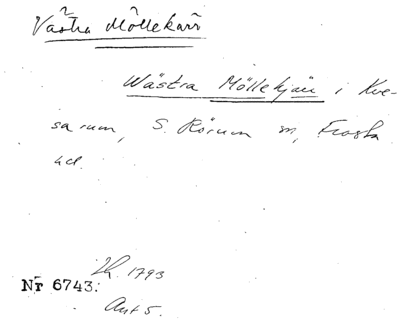 Västra Möllekärr
Wästra Möllekjärr i Kve-
sarum, S. Rörum sn, Frosta
hd.
1793
Nr 6743.
Ant 5.